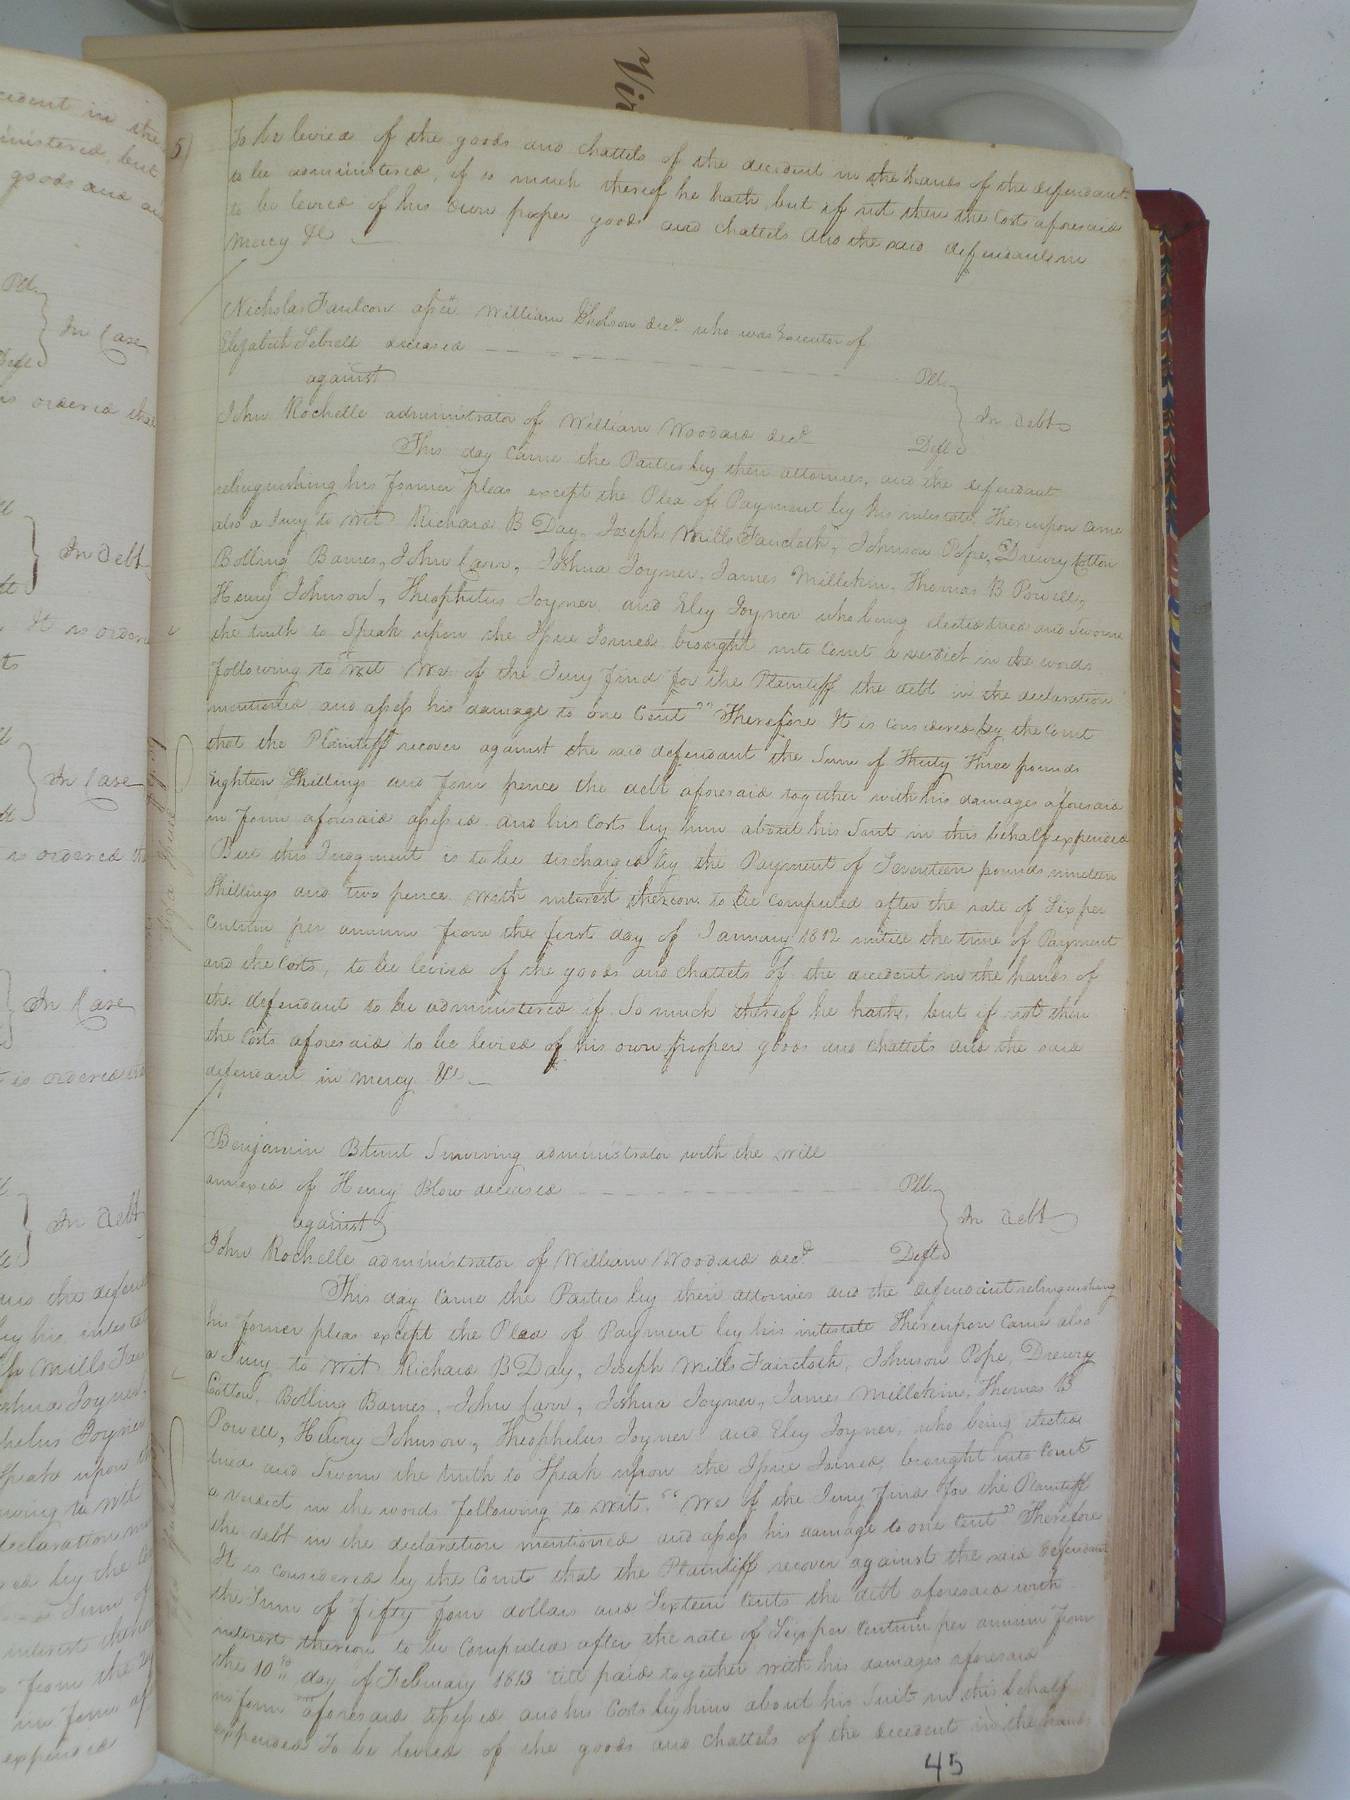 To be levied of the goods and chattels of the decedent in the hands of the defendant
to be administered, if so much thereof he hath, but if not then the Costs aforesaid
to be levied of his own proper goods and chattels And the said defendant in
Mercy &c
Nicholas Faulcon William Gholson decd. who was Executor of
Elizabeth Sebrell deceased Plt.
against
In debt
John Rochelle administrator of William Woodard decd. Deft
This day Came the Parties by their attornies, and the defendant
relinquishing his former pleas except the Plea of Payment by his intestate, Thereupon came
also a Jury to wit Richard B Day, Joseph Mills Faircloth, Johnson Pope, Drewry Cotton
Bolling Barnes, John Carr, Joshua Joyner, James Millekin, Thomas B Powell,
Henry Johnson, Theophilus Joyner, and Eley Joyner who being elected tried and Sworn
the truth to Speak upon the Issue Joined, brought into Court a verdict in the words
following to wit We of the Jury find for the Plaintiff the debt in the declaration
mentioned and assess his damage to one Cent" Therefore It is considered by the Court
that the Plaintiff recover against the said defendant the Sum of Thirty Three pounds
Eighteen Shillings and four pence the debt aforesaid together with his damages aforesaid
in form aforesaid assessed and his Costs by him about his Suit in this behalf expended
But this Judgment is to be discharged by the Payment of Seventeen pounds nineteen
Shillings and two pence with interest thereon to be Computed after the rate of Six per
Centum per annum from the first day of January 1812 untill the time of Payment
and the Costs, to be levied of the goods and chattels of the decedent in the hands of
the defendant to be administered if So much thereof he hath, but if not then
the Costs aforesaid to be levied of his own proper goods and chattels and the said
defendant in mercy &c
Benjamin Blunt Surviving administrator with the will
annexed of Henry Blow deceased Plt.
against
In debt
John Rochelle administrator of William Woodard decd. Deft
This day Came the Parties by their attornies and the defendant relinquishing
his former pleas except the Plea of Payment by his intestate Thereupon Came also
a Jury to wit Richard B Day, Joseph Mills Faircloth, Johnson Pope, Drewry
Cotton, Bolling Barnes, John Carr, Joshua Joyner, James Millekin, Thomas B
Powell, Henry Johnson, Theophilus Joyner and Eley Joyner, who being elected
tried and Sworn the truth to Speak upon the Issue Joined, brought into Court
a verdict in the words following to wit. "We of the Jury find for the Plaintiff
the debt in the declaration mentioned and assess his damage to one Cent" Therefore
It is considered by the Court that the Plaintiff recover against the said defendant
the Sum of fifty four dollars and Sixteen Cents the debt aforesaid with
interest thereon to be Computed after the rate of Six per Centum per annum from
the 10th day of February 1813 till paid together with his damages aforesaid
in form aforesaid assessed and his Costs by him about his Suit in this behalf
expended To be levied of the goods and chattels of the decedent in the hands
45